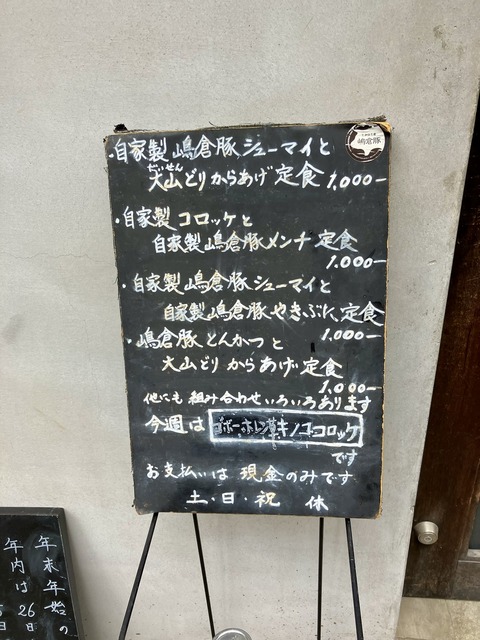 ・自家製 嶋倉豚シューマイと
だいせん
大山どり からあげ 定食 1,000-
・自家製 コロッケと
自家製 嶋倉豚メンチ 定食
1,000-
・自家製 嶋倉豚シューマイと
自家製 嶋倉豚やきぶた 定食
1,000-
・嶋倉豚 とんかつ と
大山どり からあげ 定食
1,000-
他にも 組み合わせ いろいろあります
今週は ゴボーホーレン草キノココロッケ
です
お支払いは 現金のみです
土・日・祝 休
嶋倉豚
年末年始の
年内は26日